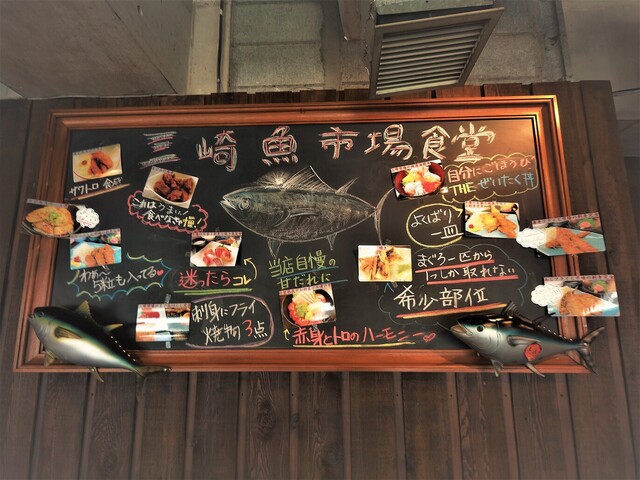 三崎魚市場食堂
サクトロ食感
これはうまい!
食べなきゃ損!
わぁ〜
5種も入ってる
迷ったらコレ
刺身にフライ
焼物の3点
当店自慢の
甘だれに
赤身とトロのハーモニー
自分にごほうび
THEぜいたく丼
よくばり
一皿
まぐろ一匹から
1つしか取れない
希少部位